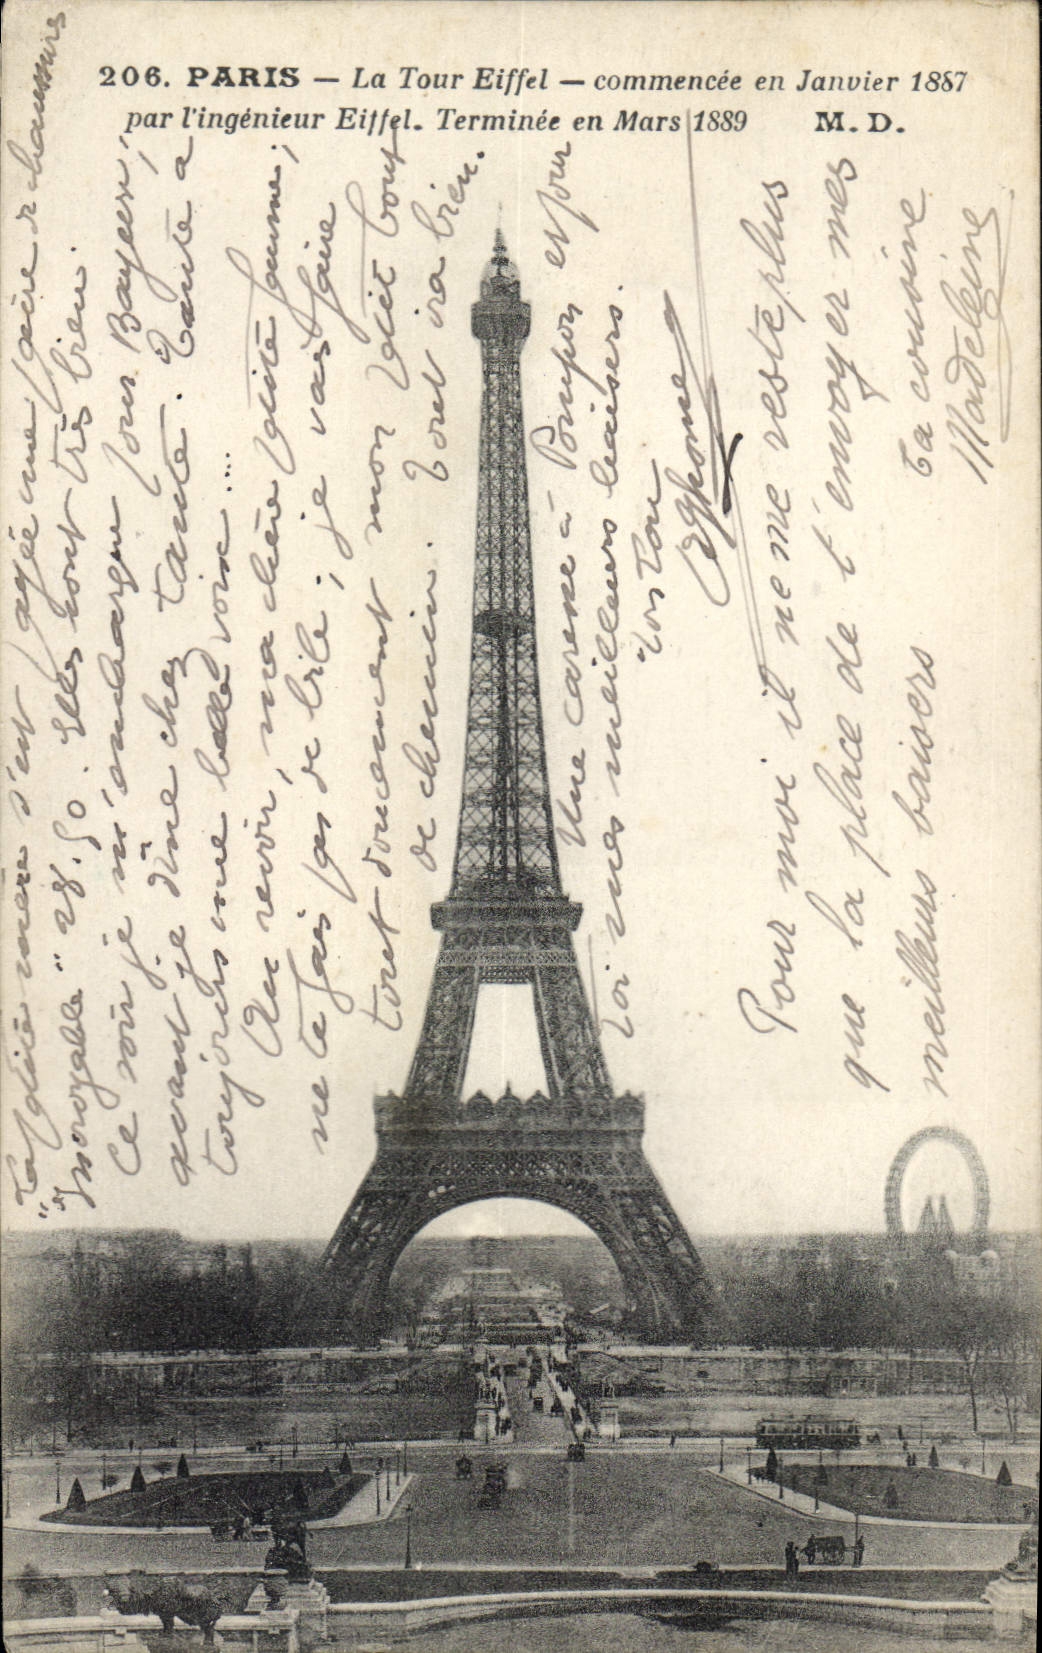 206. PARIS — La Tour Eiffel — commencée en Janvier 1887
par l'ingénieur Eiffel. Terminée en Mars 1889 M. D.
Ta petite mère s'est payée une paire de chaussures
"Incroyable" 28.50. Elles sont très bien.
Ce soir je m'embarque pour Bayeux,
avant je dîne chez tante. Tante a
toujours une belle voix ...
Au revoir, ma chère petite femme,
ne te fais pas de bile ; je vais faire
tout doucement mon petit bout
de chemin. Tout ira bien.
Une caresse à Pompon et pour
toi mes meilleurs baisers.
Ton
Pour moi il ne me reste plus
que la place de t'envoyer mes
meilleurs baisers
Ta cousine
Madeleine